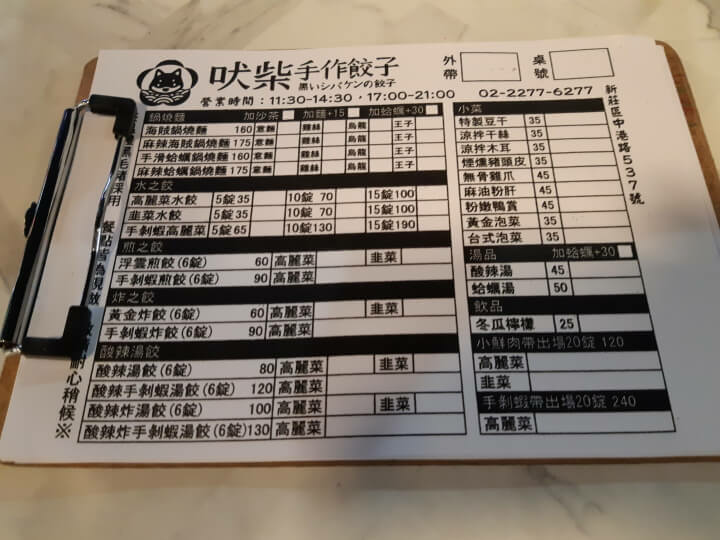 吠柴手作餃子
黒いシバケンの餃子
外帶
桌號
營業時間：11:30-14:30，17:00-21:00 02-2277-6277
新莊區中港路537號
鍋燒麵 加沙茶 加麵+15 加蛤蠣+30
海鮮鍋燒麵 160 意麵 雞絲 烏龍 王子
麻辣海鮮鍋燒麵 175 意麵 雞絲 烏龍 王子
手滑蛤蠣鍋燒麵 160 意麵 雞絲 烏龍 王子
麻辣蛤蠣鍋燒麵 175 意麵 雞絲 烏龍 王子
水之餃
高麗菜水餃 5錠 35 10錠 70 15錠100
韭菜水餃 5錠 35 10錠 70 15錠100
手剝蝦高麗菜 5錠 65 10錠130 15錠190
煎之餃
浮雲煎餃(6錠) 60 高麗菜 韭菜
手剝蝦煎餃(6錠) 90 高麗菜
炸之餃
黃金炸餃(6錠) 60 高麗菜 韭菜
手剝蝦炸餃(6錠) 90 高麗菜
酸辣湯餃
酸辣湯餃(6錠) 80 高麗菜 韭菜
酸辣手剝蝦湯餃(6錠) 120 高麗菜
酸辣炸湯餃(6錠) 100 高麗菜 韭菜
酸辣炸手剝蝦湯餃(6錠)130 高麗菜
小菜
特製豆干 35
涼拌干絲 35
涼拌木耳 35
煙燻豬頭皮 35
無骨雞爪 45
麻油粉肝 45
粉嫩鴨賞 45
黃金泡菜 35
台式泡菜 35
湯品 加蛤蠣+30
酸辣湯 45
蛤蠣湯 50
飲品
冬瓜檸檬 25
小鮮肉帶出場20錠 120
高麗菜
韭菜
手剝蝦帶出場20錠 240
高麗菜
餐點皆為現
耐心稍候※